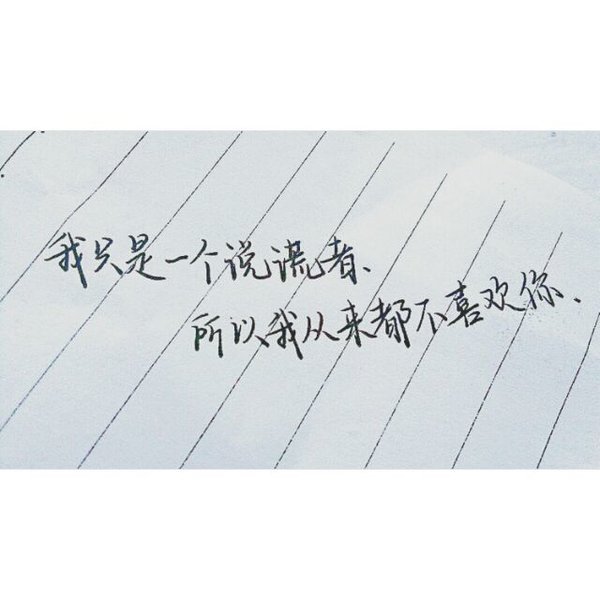 我只是一个说谎者、
所以我从来都不喜欢你、